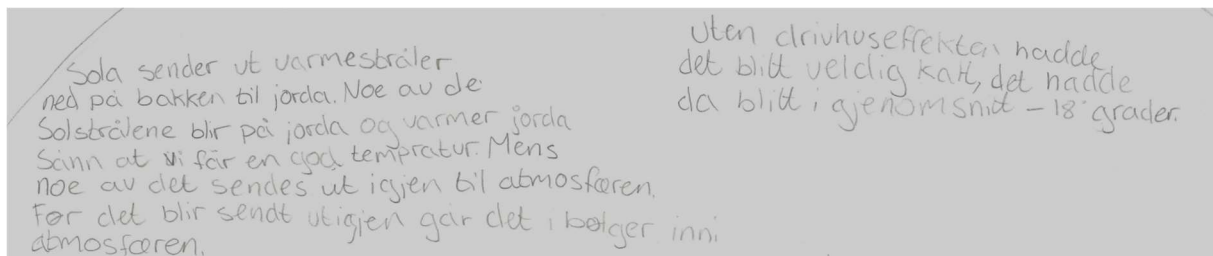 Sola sender ut varmestråler
ned på bakken til jorda. Noe av de
Solstrålene blir på jorda og varmer jorda
Sånn at vi får en god tempratur. Mens
noe av det sendes ut igjen til atmosfæren.
Før det blir sendt ut igjen går det i bølger inni
atmosfæren.
Uten drivhuseffekten hadde
det blitt veldig kaldt, det hadde
da blitt i gjenomsnitt -18 grader.